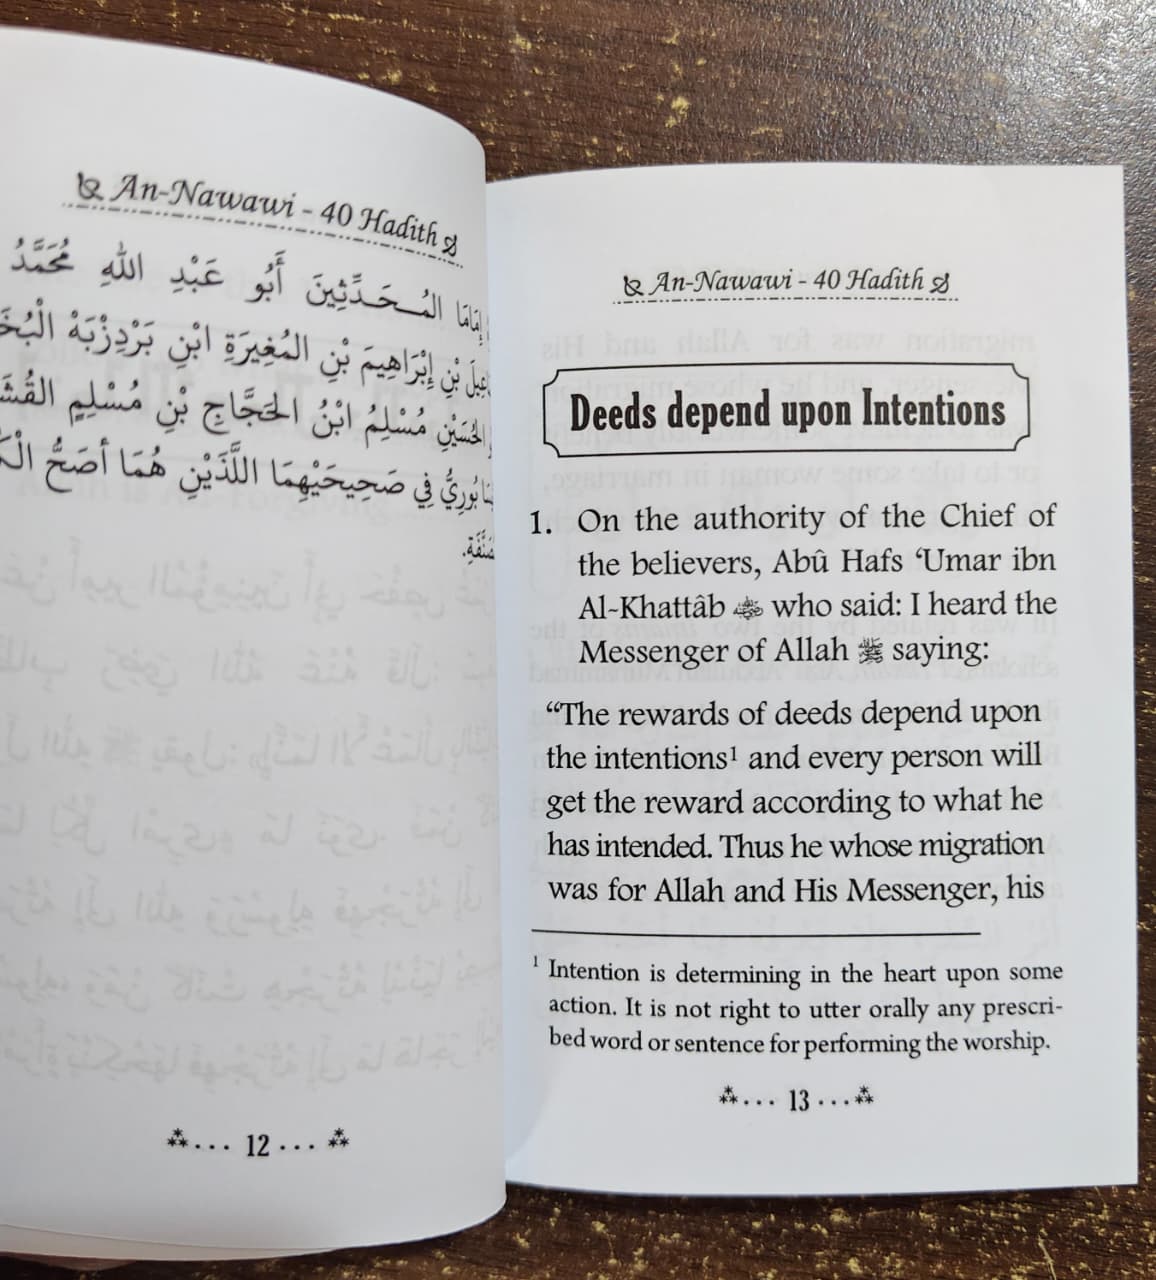 An-Nawawi - 40 Hadith
إِمَامَا المُحَدِّثِينَ أَبُو عَبْدِ اللهِ مُحَمَّدُ
بْنِ إِبْرَاهِيمَ بْنِ المُغِيرَةِ ابْنِ بَرْدِزْبَهْ
الحُسَيْنِ مُسْلِمُ ابْنُ الحَجَّاجِ بْنِ مُسْلِمٍ
فِي صَحِيحَيْهِمَا اللَّذَيْنِ هُمَا أَصَحُّ
... 12 ...
An-Nawawi - 40 Hadith
Deeds depend upon Intentions
1. On the authority of the Chief of
the believers, Abû Hafs ‘Umar ibn
Al-Khattâb who said: I heard the
Messenger of Allah ﷺ saying:
“The rewards of deeds depend upon
the intentions¹ and every person will
get the reward according to what he
has intended. Thus he whose migration
was for Allah and His Messenger, his
¹ Intention is determining in the heart upon some
action. It is not right to utter orally any prescri-
bed word or sentence for performing the worship.
... 13 ...